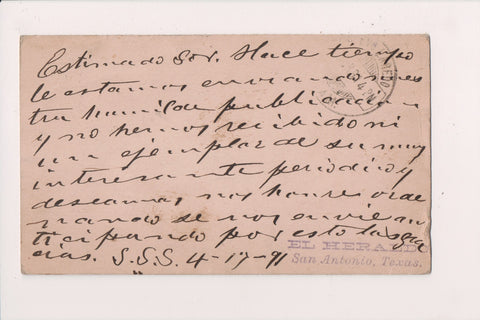 Estimado Sor. Hace tiempo
le estamos enviando nues
tra humilde publicacion
y no hemos recibido ni
un ejemplar de su muy
interesante periodico y
deseamos nos honre orde
nando se nos envie an
ticipando por esto las gra
cias. S.S.S. 4-17-91
EL HERALDO
San Antonio, Texas.